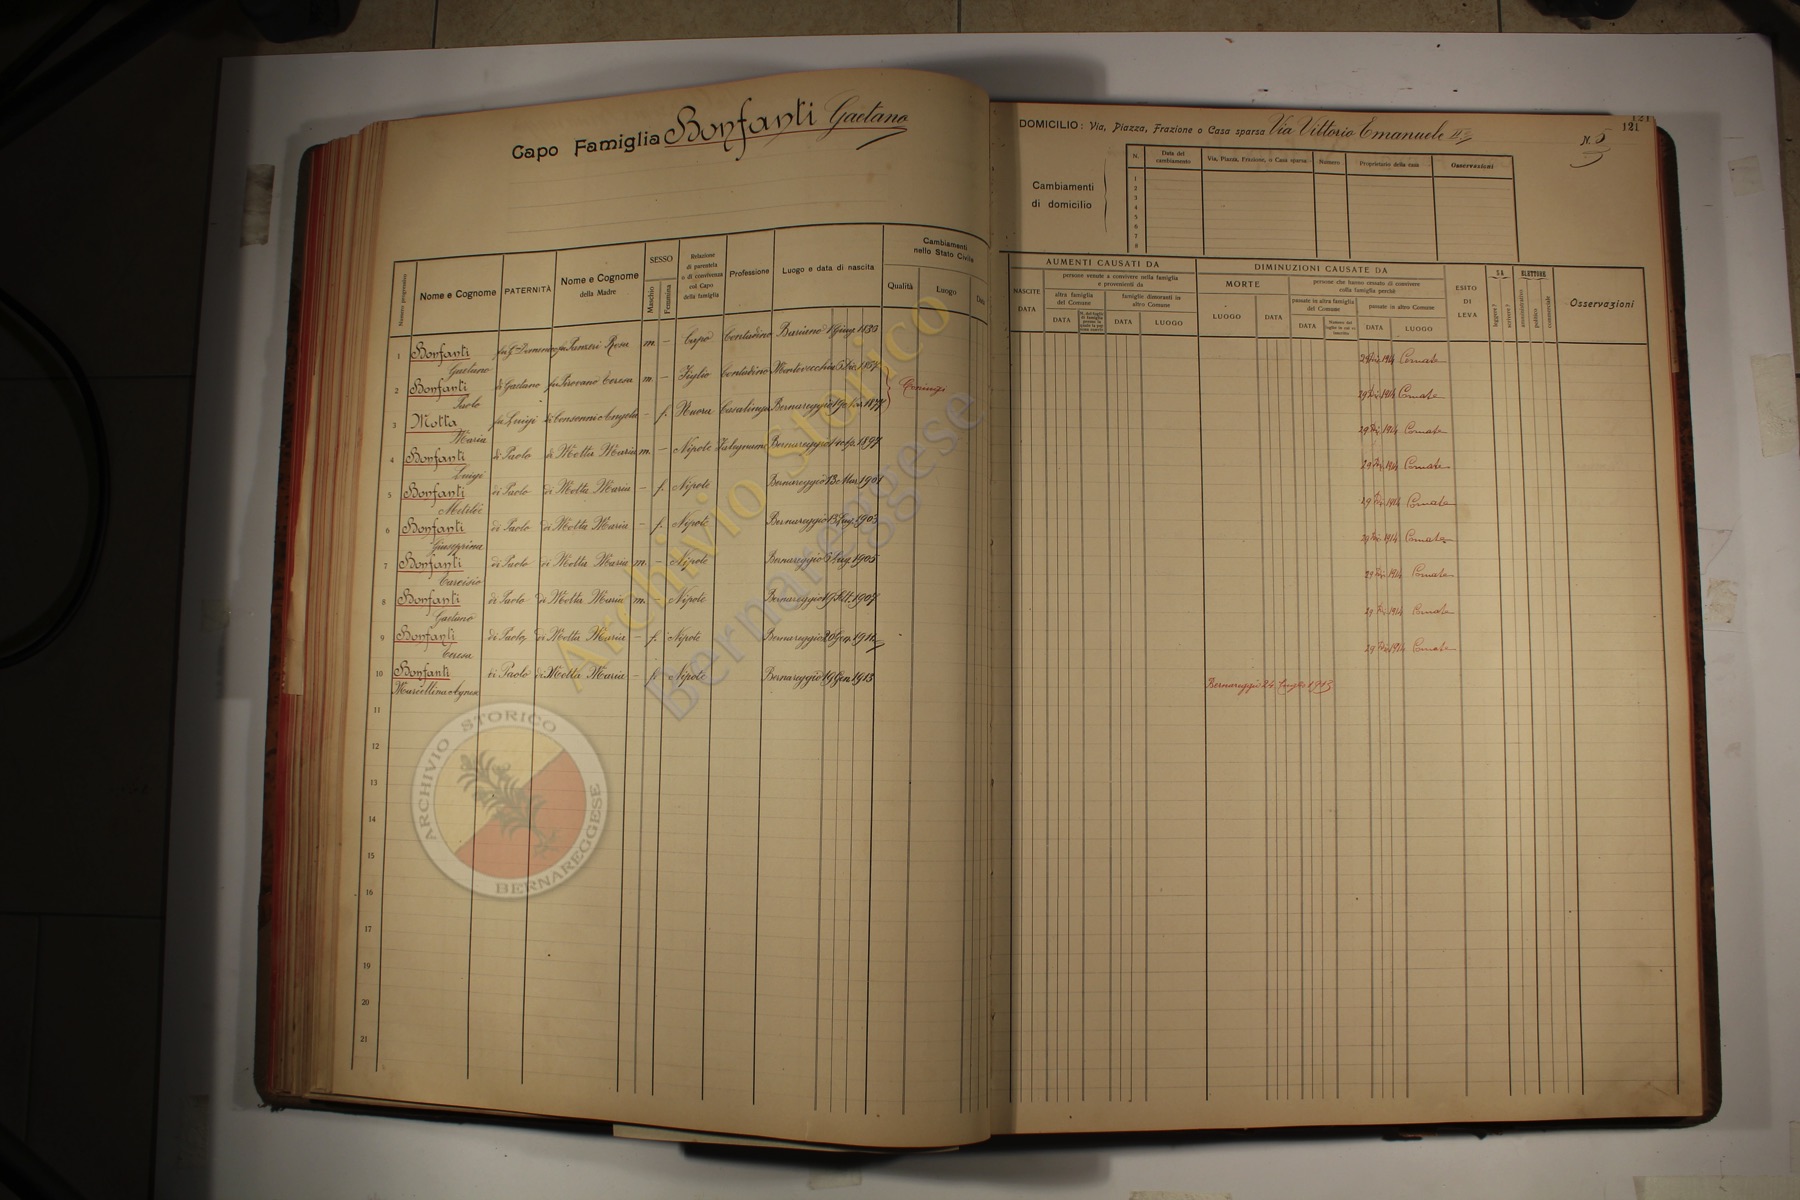 Capo Famiglia Bonfanti Gaetano
Numero progressivo
Nome e Cognome
PATERNITÀ
Nome e Cognome della Madre
SESSO
Maschio
Femmina
Relazione di parentela o di convivenza col Capo della famiglia
Professione
Luogo e data di nascita
Cambiamenti nello Stato Civile
Qualità
Luogo
Data
1 Bonfanti Gaetano fu Panzeri Rosa m. – Capo Contadino
2 Bonfanti Paolo di Gaetano fu Pirovano Teresa m. – Figlio Contadino Montevecchia
Coniugi
3 Motta Maria fu Luigi di Consonni Angela – f. Nuora Casalinga Bernareggio
4 Bonfanti Luigi di Paolo di Motta Maria m. – Nipote Falegname Bernareggio 1897
5 Bonfanti di Paolo di Motta Maria – f. Nipote Bernareggio 13 Mar. 1901
6 Bonfanti Giuseppina di Paolo di Motta Maria – f. Nipote Bernareggio 1903
7 Bonfanti Tarcisio di Paolo di Motta Maria m. – Nipote Bernareggio 1905
8 Bonfanti Gaetano di Paolo di Motta Maria m. – Nipote Bernareggio 19 Ott. 1907
9 Bonfanti Teresa di Paolo di Motta Maria – f. Nipote Bernareggio 20 Gen. 1911
10 Bonfanti Marcellina Agnese di Paolo di Motta Maria – f. Nipote Bernareggio 19 Gen 1913
11
12
13
14
15
16
17
18
19
20
21
121
121
DOMICILIO: Via, Piazza, Frazione o Casa sparsa Via Vittorio Emanuele II
N. 5
Cambiamenti di domicilio
N.
Data del cambiamento
Via, Piazza, Frazione, o Casa sparsa
Numero
Proprietario della casa
Osservazioni
1
2
3
4
5
6
7
8
AUMENTI CAUSATI DA
NASCITE
DATA
persone venute a convivere nella famiglia e provenienti da
altra famiglia del Comune
DATA
famiglie dimoranti in altro Comune
DATA
LUOGO
DIMINUZIONI CAUSATE DA
MORTE
LUOGO
DATA
persone che hanno cessato di convivere colla famiglia perchè
passate in altra famiglia del Comune
DATA
passate in altro Comune
DATA
LUOGO
ESITO DI LEVA
SA
leggere?
scrivere?
ELETTORE
amministrativo
politico
commerciale
Osservazioni
1914 Cornate
1914 Cornate
1914 Cornate
1914 Cornate
1914 Cornate
1914 Cornate
1914 Cornate
1914 Cornate
1914 Cornate
Bernareggio 24 Luglio 1913
Archivio Storico
Bernareggese
ARCHIVIO STORICO
BERNAREGGESE